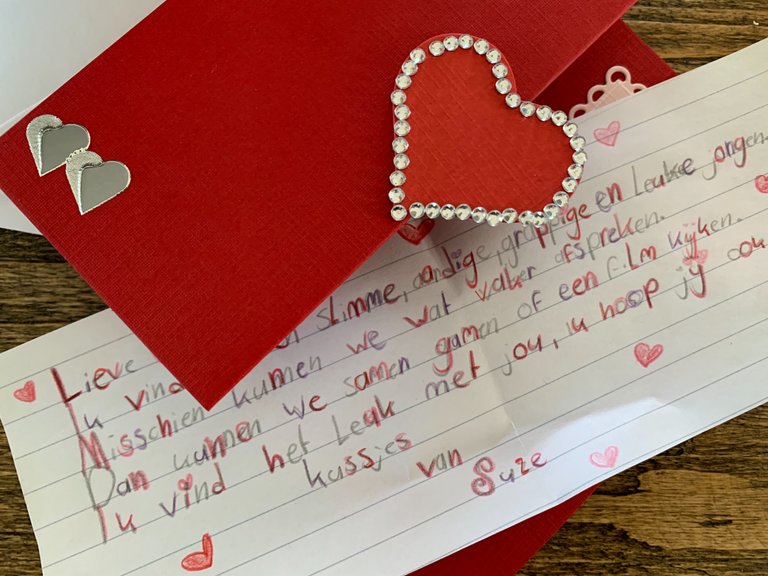 Lieve
Ik vind slimme, aardige, grappige en Leuke jongen.
Misschien kunnen we wat vaker afspreken.
Dan kunnen we samen gamen of een film kijken.
Ik vind het Leuk met jou, ik hoop jij ook.
kussjes van Suze